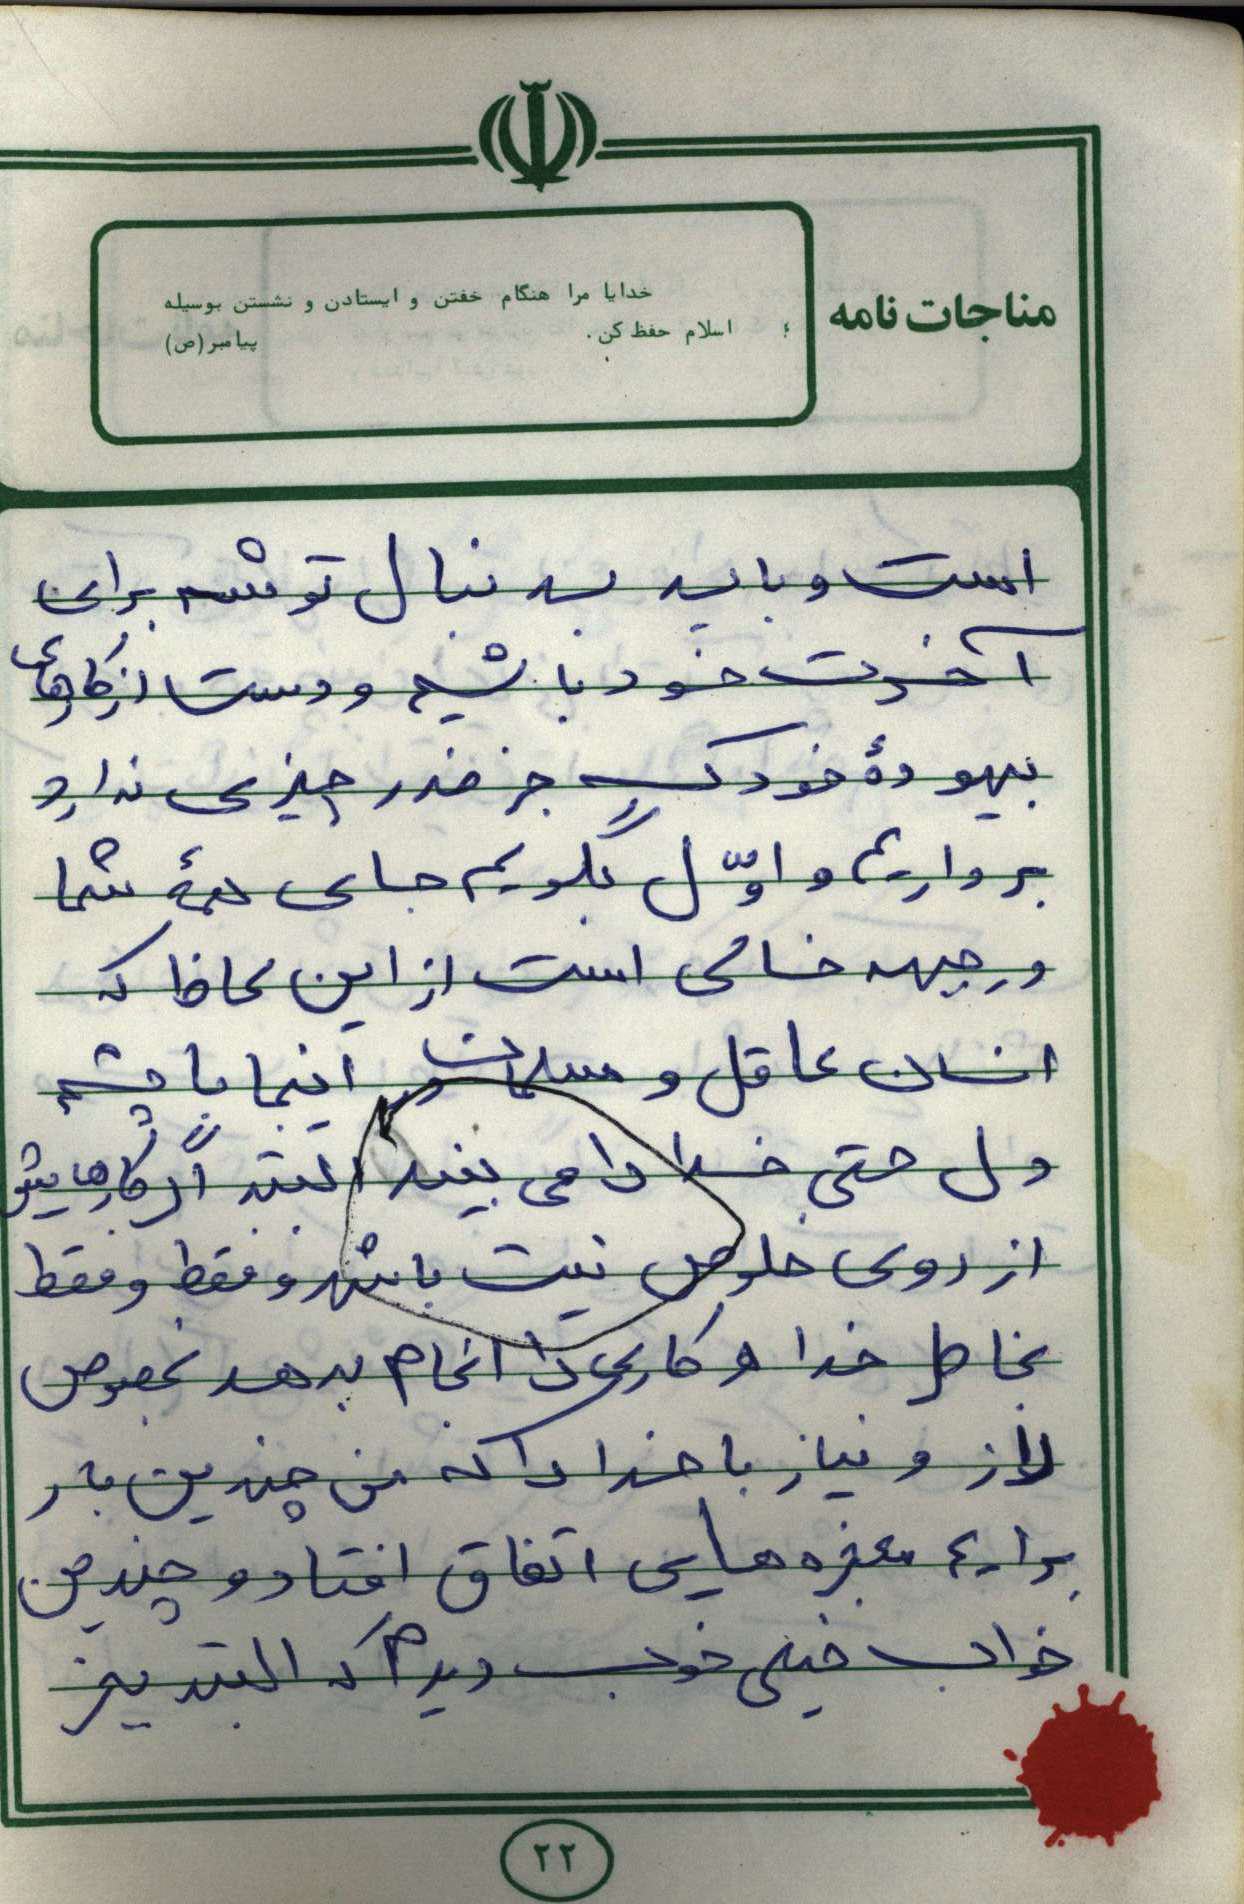 مناجات نامه
خدایا مرا هنگام خفتن و ایستادن و نشستن بوسیله
اسلام حفظ کن .
پیامبر (ص)
است و باید به دنبال توشه برای
آخرت خود باشیم و دست از کارهای
بیهودهٔ خود که جز ضرر چیزی ندارد
برداریم و اوّل بگویم جای همهٔ شما
در جبهه خالی است از این لحاظ که
انسان عاقل و مسلمان اینجا با چشم
دل حتی خدا را می بیند البته اگر کارهایش
از روی خلوص نیت باشد و فقط و فقط
بخاطر خدا کاری را انجام بدهد بخصوص
راز و نیاز با خدا را که من چندین بار
برایم معجزه هایی اتفاق افتاد و چندین
خواب خیلی خوب دیدم که البته بجز
۲۲